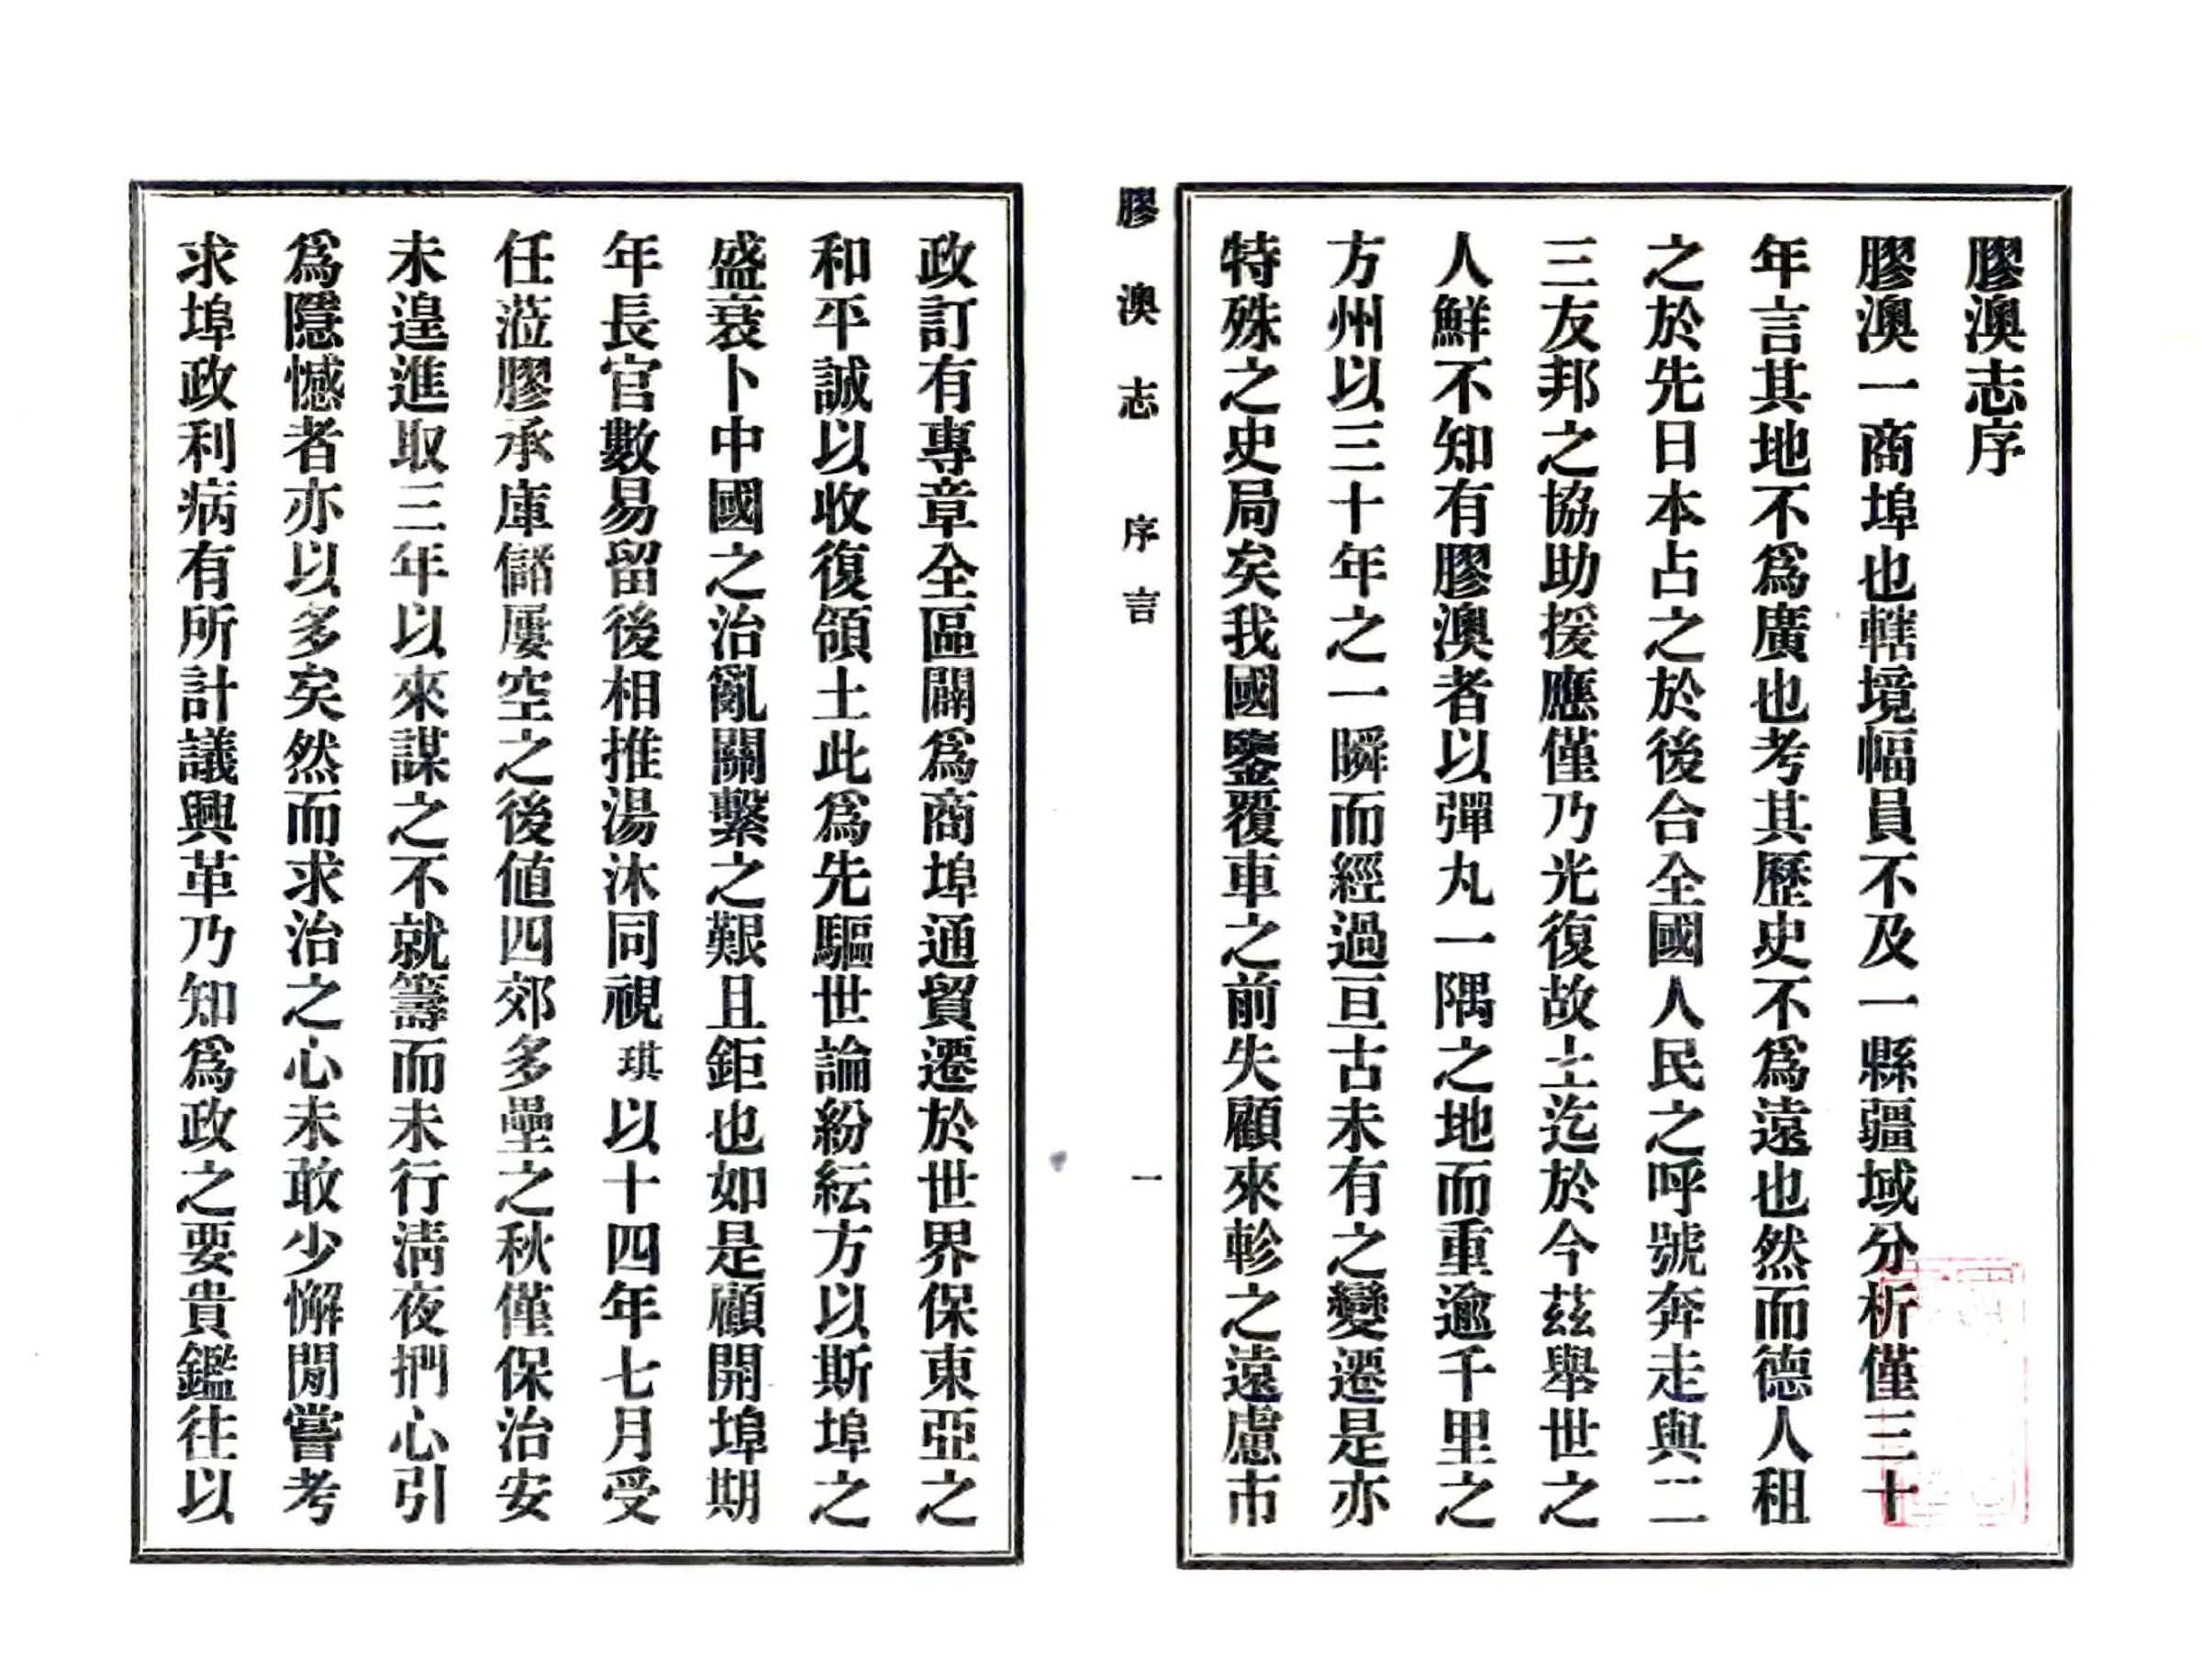 膠澳志序
膠澳一商埠也轄境幅員不及一縣疆域分析僅三十
年言其地不爲廣也考其歷史不爲遠也然而德人租
之於先日本占之於後合全國人民之呼號奔走與二
三友邦之協助援應僅乃光復故土迄於今茲舉世之
人鮮不知有膠澳者以彈丸一隅之地而重逾千里之
方州以三十年之一瞬而經過亘古未有之變遷是亦
特殊之史局矣我國鑒覆車之前失顧來軫之遠慮市
膠澳志 序言 一
政訂有專章全區闢爲商埠通貿遷於世界保東亞之
和平誠以收復領土此爲先驅世論紛紜方以斯埠之
盛衰卜中國之治亂關繫之艱且鉅也如是顧開埠期
年長官數易留後相推湯沐同視琪以十四年七月受
任蒞膠承庫儲屢空之後値四郊多壘之秋僅保治安
未遑進取三年以來謀之不就籌而未行淸夜捫心引
爲隱憾者亦以多矣然而求治之心未敢少懈閒嘗考
求埠政利病有所計議興革乃知爲政之要貴鑑往以